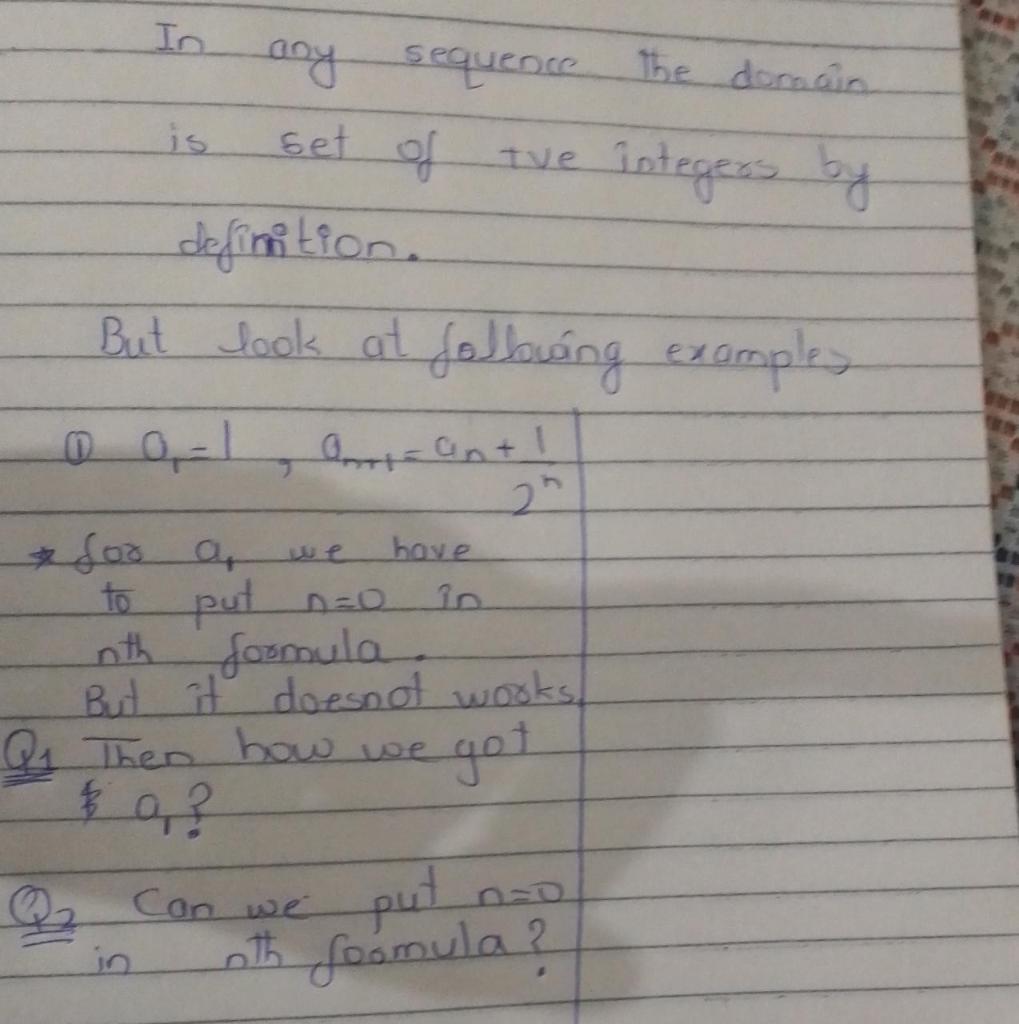 In any sequence the domain
is set of +ve integers by
definition.
But look at following examples
① a₁=1 , aₙ₊₁=aₙ+1/2ⁿ
* for a₁ we have
to put n=0 in
nth formula.
But it doesnot works.
Q1 Then how we got
a₁?
Q2 Can we put n=0
in nth formula?